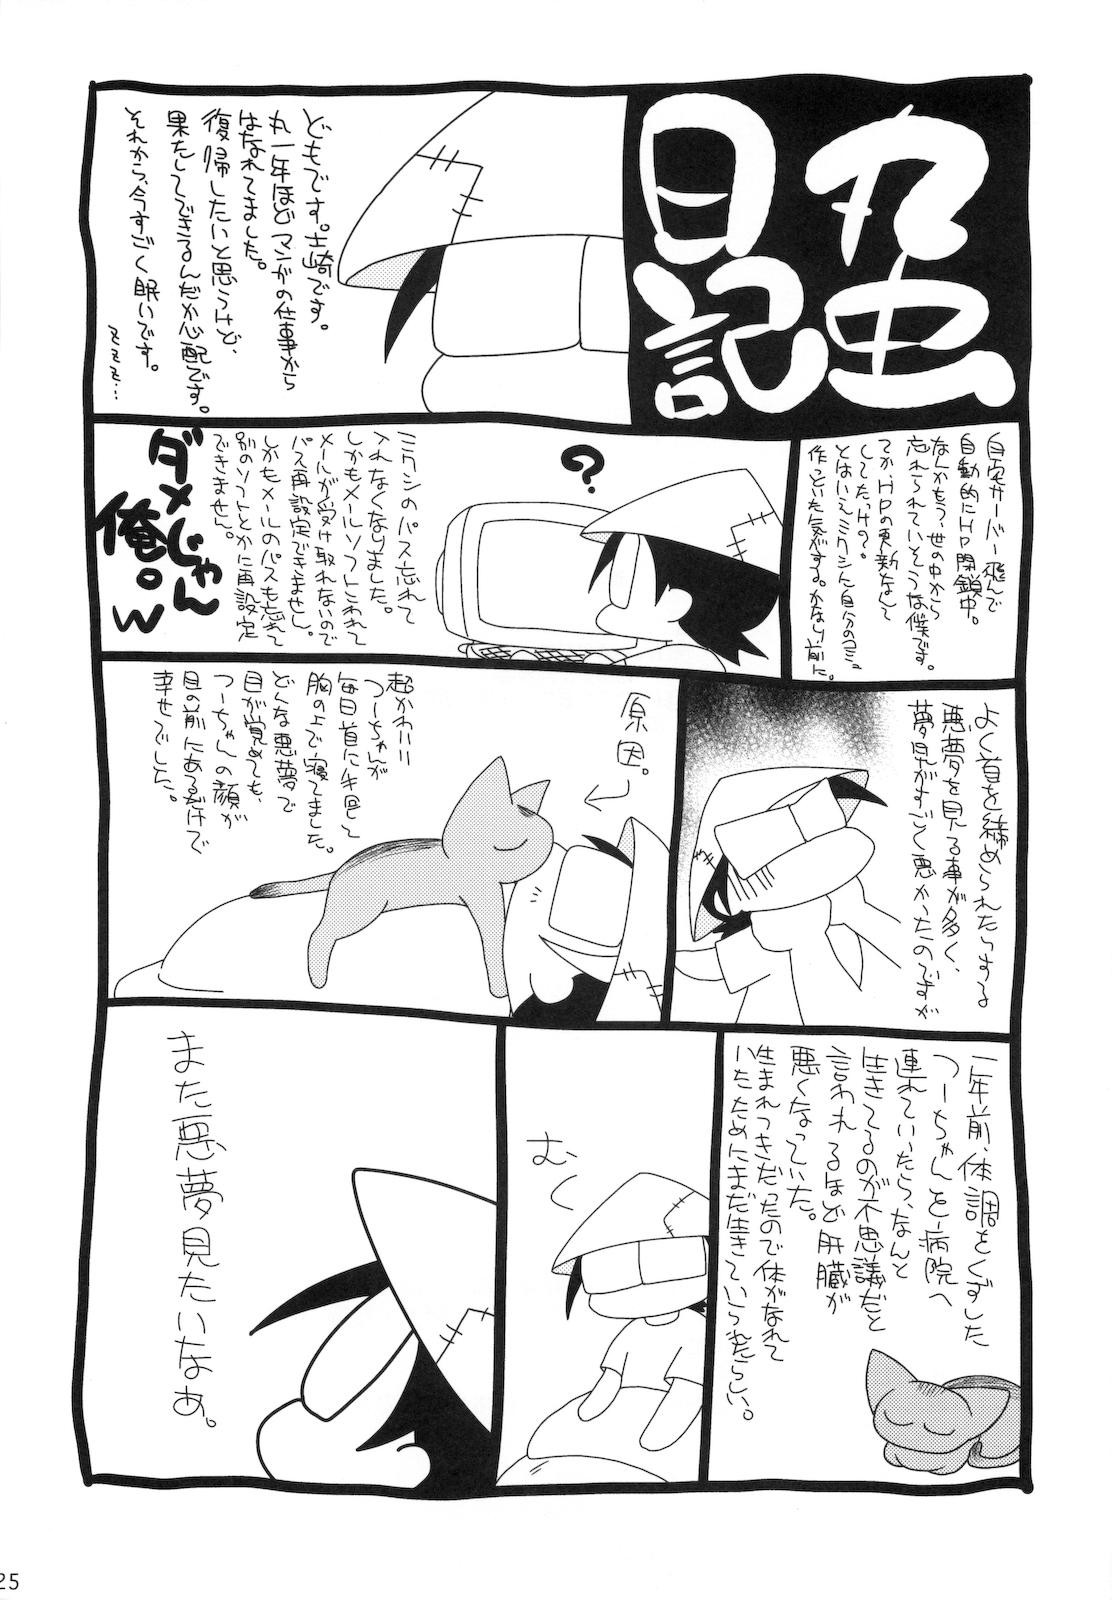 丸虫
日記
どもです。土崎です。
丸一年ほどマンガの仕事から
はなれてました。
復帰したいと思うけど、
果たしてできるんだか心配です。
それから、今すごく眠いです。
ミミミ…
自宅サーバー飛んで
自動的にHP閉鎖中。
なんかもう、世の中から
忘れられていそうな僕です。
てか、HPの更新なんて
してた、けの?。
とはいえミクシん自分のコミュ
作っていた気がする。かなり前に。
?
ミクシのパス忘れて
入れなくなりました。
しかもメールソフトこわれて
メールが受け取れないので
パス再設定できません。
しかもメールのパスも忘れて
別のソフトとかに再設定
できません。
ダメじゃん
俺。w
よく首を締められたりする
悪夢を見る事が多く、
夢見がすごく悪かったのですが
原因。
超かわいい
つーちゃんが
毎日首に半回し
胸の上で寝てました。
どんな悪夢で
目が覚めても、
つーちゃんの顔が
目の前にあるだけで
幸せでした。
一年前、体調をくずした
つーちゃんを病院へ
連れていったら、なんと
生きてるのが不思議だと
言われるほど肝臓が
悪くなっていた。
生まれつきだったので体がなれて
いたためにまだ生きていられたらしい。
むく
また悪夢見たいなぁ。
25